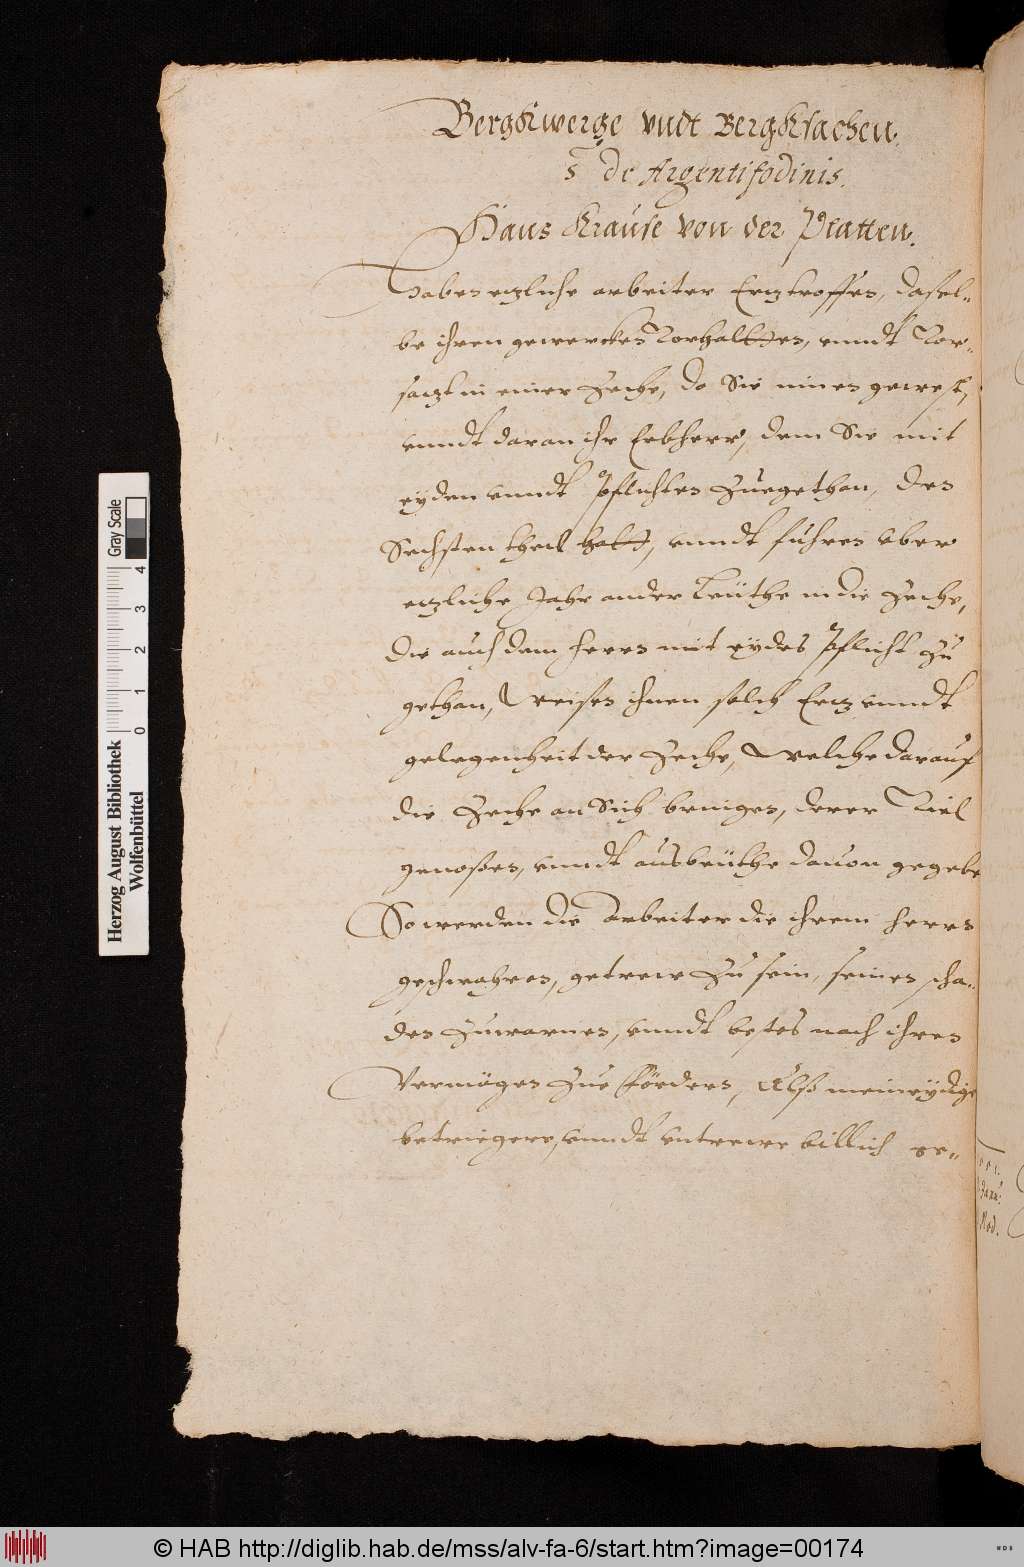 Bergkwerge vndt Bergksachen.
s de Argentifodinis.
Hans Krause von der Platten.
Haben ezliche arbeiter Erz troffen, dasel-
be ihren gewercken Vorhalten, vnndt Vor-
sazt in einer Zeche, do Sie innen gewest,
vnndt daran ihr Erbherr, dem Sie mit
eyden vnndt pflichten Zuegethan, den
Sechsten theil hatt, vnndt fuhren vber
ezliche Jahr ander Leuthe in die Zeche,
die auch dem herrn mit eydes pflicht zu
gethan, Weisen ihnen solch Erz vnndt
gelegenheit der Zeche, Welche darauf
die Zeche an Sich bringen, derer Viel
genoßen, vnndt ausbeuthe dauon gegebe
So werden die Arbeiter die ihrem herrn
geschwohren, getrew zu sein, seinen scha-
den zuwarnen, vnndt bestes nach ihren
Vermögen Zue förders, Alß meineydige
betriegere, vnndt vntrewe billich ge-
Herzog August Bibliothek
Wolfenbüttel
0 1 2 3 4
Gray Scale
© HAB http://diglib.hab.de/mss/alv-fa-6/start.htm?image=00174